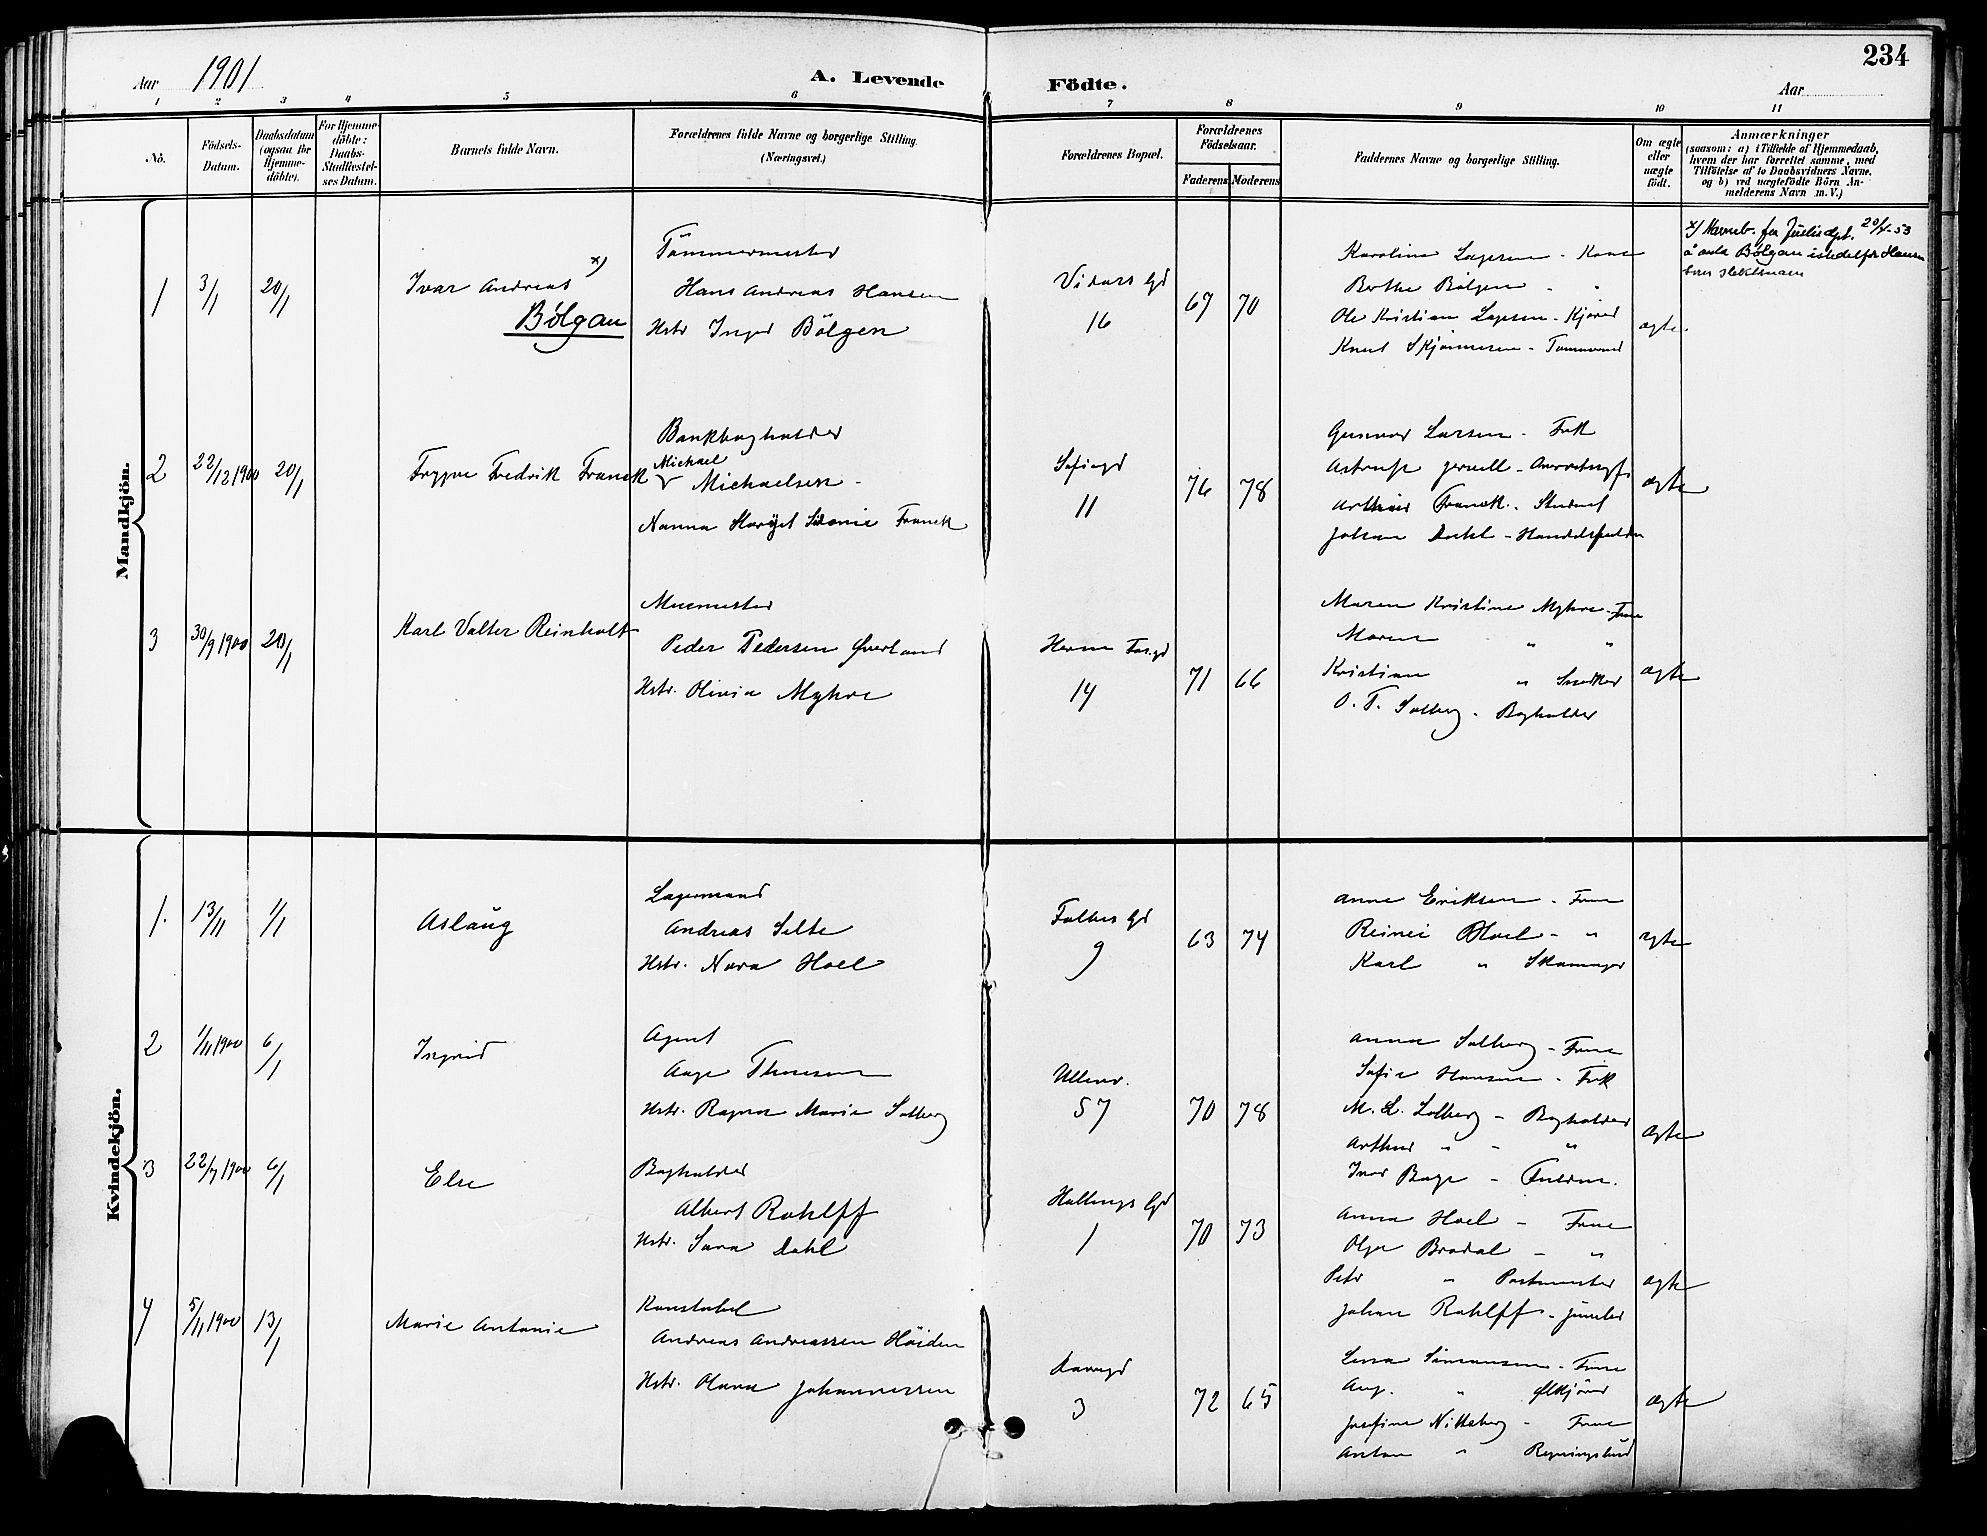 234
Aar 1901
A. Levende Födte.
Aar
1 2 3 4 5 6 7 8 9 10 11
Nô.
Födsels-Datum.
Daabsdatum (ogsaa for Hjemme-döbte).
For Hjemme-döbte: Daabs-Stadfæstel-ses Datum.
Barnets fulde Navn.
Forældrenes fulde Navne og borgerlige Stilling.
(Næringsvei.)
Forældrenes Bopæl.
Forældrenes Födselsaar.
Faderens Moderens
Faddernes Navne og borgerlige Stilling.
Om ægte eller uægte födt.
Anmærkninger
(saasom: a) i Tilfælde af Hjemmedaab,
hvem der har forrettet samme, med
Tilföielse af to Daabsvidners Navne,
og b) ved uægtefödte Börn An-
melderens Navn m.V.)
Mandkjön.
1 3/1 20/1
Ivar Andreas x)
Bølgan
Tömmermester
Hans Andreas Hansen
Hstr Inger Bölgen
Vidars Gd
16
67 70
Karoline Lagesen - Kone
Berthe Bölgen - "
Ole Kristian Lagesen - Kjöred
Knut Skjönnesen - Tommermd
ægte
x) Navneb. fra Justisdept. 20/4-53
å anta Bølgan istedetfor Hansen
som slektsnavn
2 22/12 1900 20/1
Trygve Fredrik Franck
Bankbogholder
Michael
Michaelsen -
Nanna Margit Sidonie Franck
Sofiegd
11
76 78
Gunvor Larsen - Frk
Astrup Jervell -
Arthur Franck - Student
Johan Dahl -
ægte
3 30/9 1900 20/1
Karl Valter Reinholt
Murmester
Peder Pedersen Överland
Hstr. Olivia Myhre
14
71 66
Maren Kristine Myhre - Frue
Maren " "
Kristian " Snedker
O. T. Solberg - Bogholder
ægte
Kvindekjön.
1. 13/11 1/1
Aslaug
Lagermand
Andreas Selte
Hstr. Nora Hoel
Falbes Gd
9
63 74
Anne Eriksen - Frue
Reinei Hoel - "
Karl " Skomager
ægte
2 1/11 1900 6/1
Ingrid
Agent
Aage Thoresen
Hstr. Ragna Marie Solberg
Ullevv.
57
70 78
Anna Solberg - Frue
Sofie Hansen - Frk
M. L. Solberg - Bogholder
Arthur " - "
Ivar Bage -
ægte
3 22/7 1900 6/1
Else
Bogholder
Albert Rohlff
Hstr. Sara Dahl
Hallings Gd
1
70 73
Anna Hoel - Frue
Olga Brodal - "
Petr " Postmester
Johan Rohlff - Juveler
ægte
4 5/11 1900 13/1
Marie Antonie
Konstabel
Andreas Andreassen Höiden
Hstr. Olava Johannessen
3
72 65
Lena Simensen - Frue
Aug. " Ölkjörer
Josefine Nitteberg - Frue
Anton "
ægte